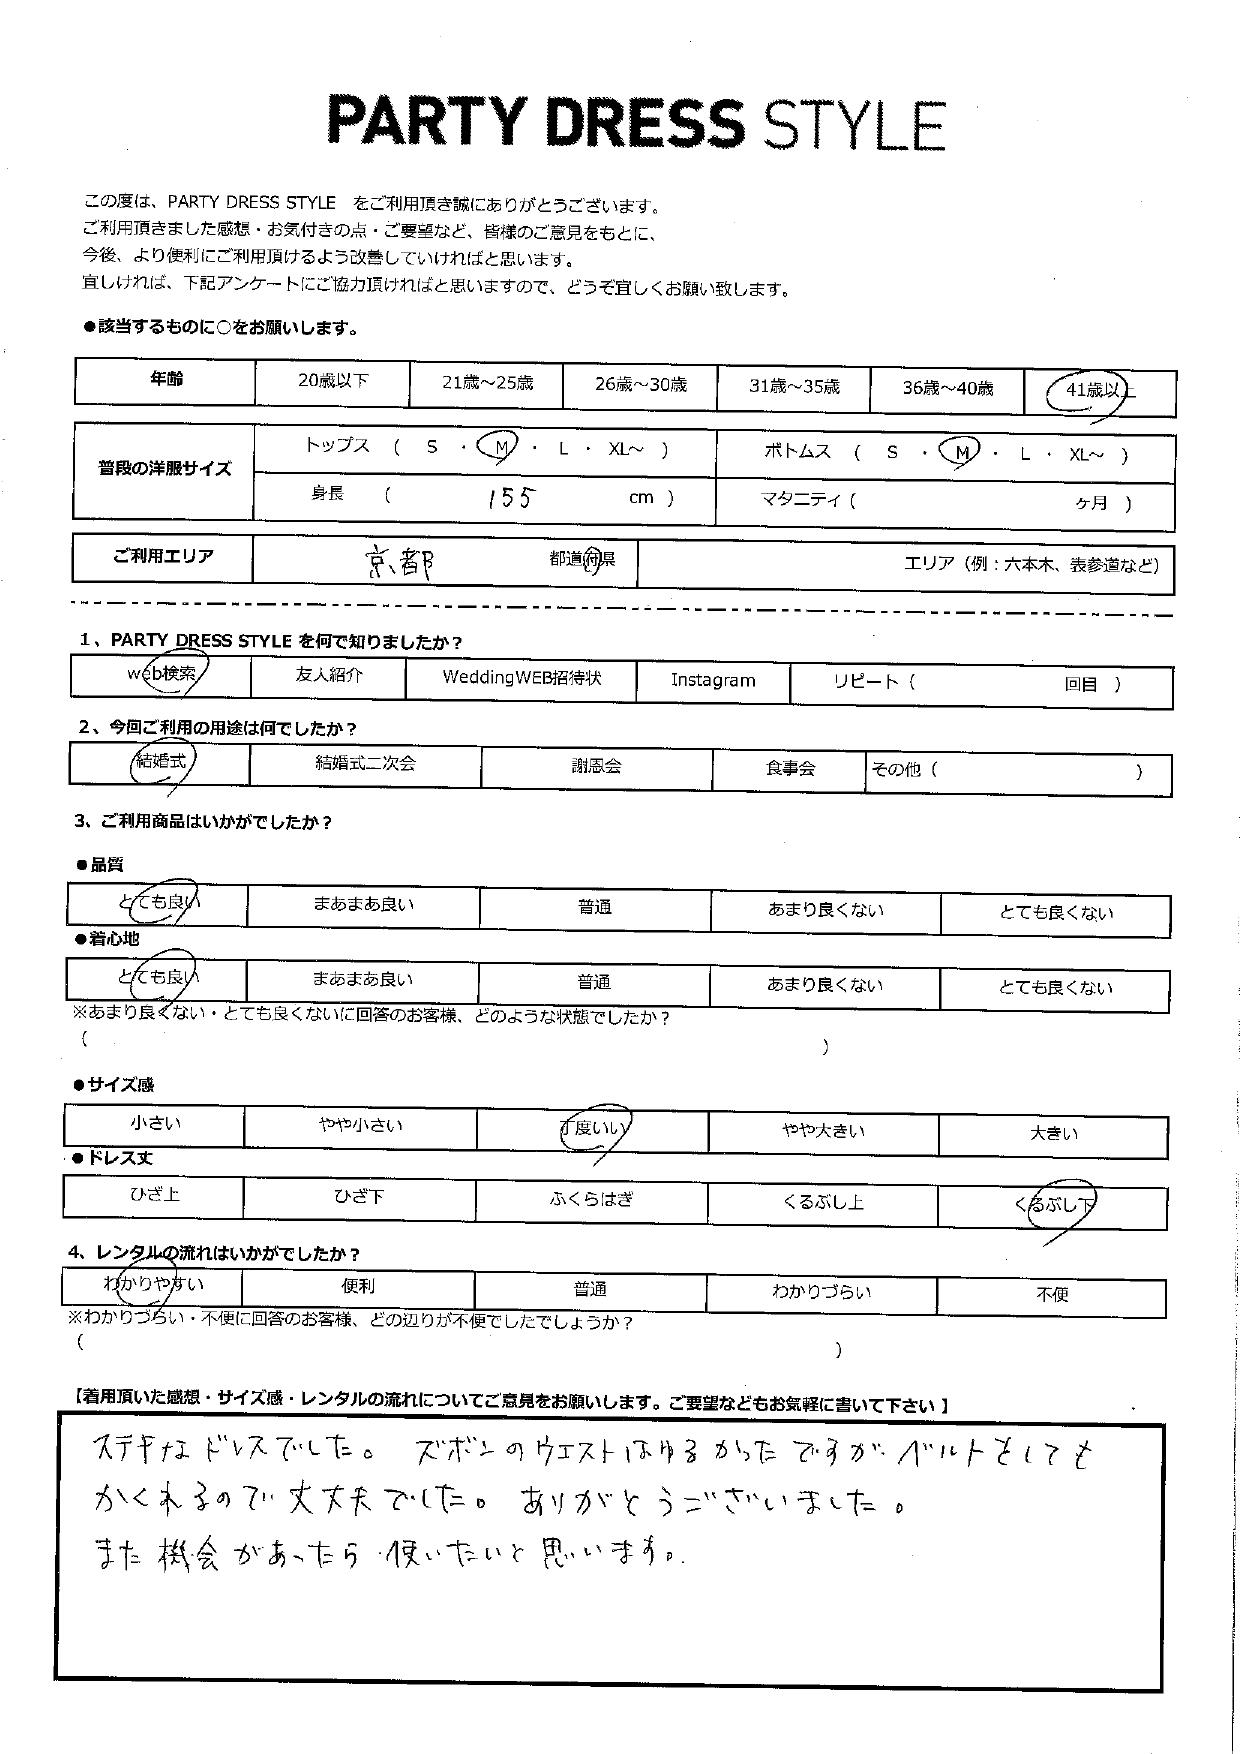 PARTY DRESS STYLE
この度は、PARTY DRESS STYLE をご利用頂き誠にありがとうございます。
ご利用頂きました感想・お気付きの点・ご要望など、皆様のご意見をもとに、
今後、より便利にご利用頂けるよう改善していければと思います。
宜しければ、下記アンケートにご協力頂ければと思いますので、どうぞ宜しくお願い致します。
●該当するものに○をお願いします。
年齢 20歳以下 21歳～25歳 26歳～30歳 31歳～35歳 36歳～40歳 41歳以上
普段の洋服サイズ
トップス ( S ・ M ・ L ・ XL～ ) ボトムス ( S ・ M ・ L ・ XL～ )
身長 ( 155 cm ) マタニティ ( ヶ月 )
ご利用エリア 京都 都道府県 エリア（例：六本木、表参道など）
1、PARTY DRESS STYLE を何で知りましたか？
web検索 友人紹介 WeddingWEB招待状 Instagram リピート ( 回目 )
2、今回ご利用の用途は何でしたか？
結婚式 結婚式二次会 謝恩会 食事会 その他 ( )
3、ご利用商品はいかがでしたか？
●品質
とても良い まあまあ良い 普通 あまり良くない とても良くない
●着心地
とても良い まあまあ良い 普通 あまり良くない とても良くない
※あまり良くない・とても良くないに回答のお客様、どのような状態でしたか？
( )
●サイズ感
小さい やや小さい 丁度いい やや大きい 大きい
●ドレス丈
ひざ上 ひざ下 ふくらはぎ くるぶし上 くるぶし下
4、レンタルの流れはいかがでしたか？
わかりやすい 便利 普通 わかりづらい 不便
※わかりづらい・不便に回答のお客様、どの辺りが不便でしたでしょうか？
( )
【着用頂いた感想・サイズ感・レンタルの流れについてご意見をお願いします。ご要望などもお気軽に書いて下さい】
ステキなドレスでした。 ズボンのウエストはゆるかったですが ベルトをしても
かくれるので 丈夫夫でした。 ありがとうございました。
また機会があったら 使いたいと思います。